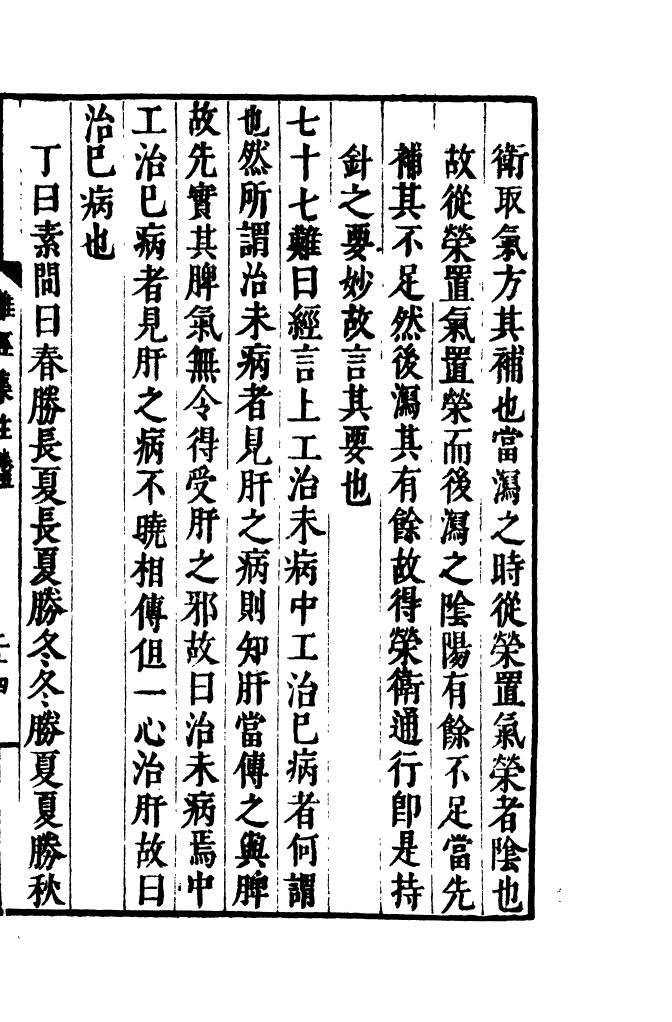 衛取氣方其補也當瀉之時從榮置氣榮者陰也
故從榮置氣置榮而後瀉之陰陽有餘不足當先
補其不足然後瀉其有餘故得榮衛通行卽是持
針之要妙故言其要也
七十七難曰經言上工治未病中工治巳病者何謂
也然所謂治未病者見肝之病則知肝當傳之與脾
故先實其脾氣無令得受肝之邪故曰治未病焉中
工治巳病者見肝之病不曉相傳但一心治肝故曰
治巳病也
丁曰素問曰春勝長夏長夏勝冬冬勝夏夏勝秋
難經集註卷